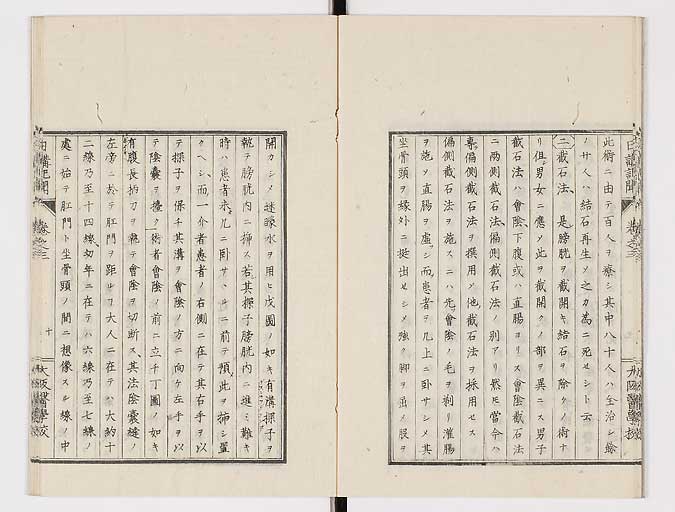 此術ニ由テ百人ヲ療シ其中八十人ハ全治シ餘
ノ廿人ハ結石再生ノ之カ為ニ死セシト云
二截石法 是膀胱ヲ截開キ結石ヲ除クノ術ナ
リ但男女ニ應ノ此ヲ截開クノ部ヲ異ニス男子
截石法ハ會陰下腹或ハ直腸ヨリス會陰截石法
ニ両側截石法偏側截石法ノ別アリ然モ當今ハ
專偏側截石法ヲ撰用メ他截石法ヲ採用セス
偏側截石法ヲ施スニハ先會陰ノ毛ヲ剃リ灌腸
ヲ施ノ直腸ヲ虚シ而患者ヲ几上ニ卧サシメ其
坐骨頭ヲ緣外ニ挺出セシメ強ク脚ヲ出ノ股ヲ
開カシメ
水ヲ用ヒ戊圖ノ如キ有溝探子ヲ
執テ膀胱内ニ挿ス若其探子膀胱内ニ進ミ難キ
時ハ患者未几ニ卧サヽルニ前テ預此ヲ挿シ置
クヘシ而一介者患者ノ右側ニ在テ其右手ヲ以
テ探子ヲ保チ其溝ヲ會陰ノ方ニ向ケ左手ヲ以
テ陰嚢ヲ擡ク術者會陰ノ前ニ立チ丁圖ノ如キ
有腹長柄刀ヲ執テ會陰ヲ切断ス其法陰嚢縫ノ
左旁ニ於テ肛門ヲ距ル丁大人ニ在テハ大約十
二線乃至十四線幼年ニ在テハ六線乃至七線ノ
處ニ始テ肛門ト坐骨頭ノ間ニ想像スル線ノ中
日講記聞 卷之三
十
大阪醫學校